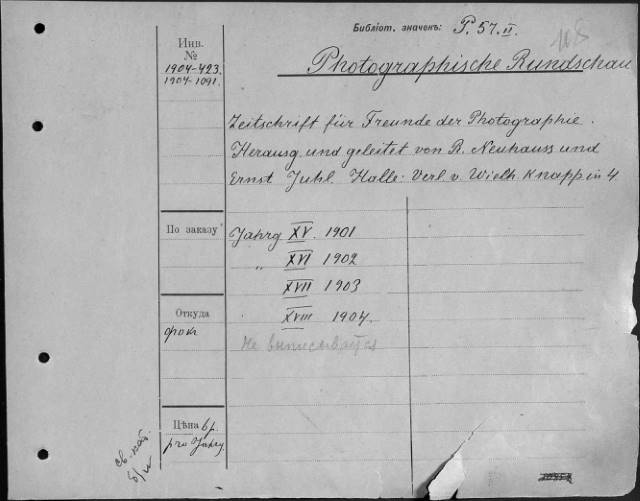 Библіот. значекъ: P. 57. II.
Инв.
№
1904-423.
1904-1091.
Photographische Rundschau
Zeitschrift für Freunde der Photographie.
Herausg. und geleitet von R. Neuhauss und
Ernst Juhl. Halle: Verl. v. Wilh. Knapp in 4
По заказу
Jahrg XV. 1901
„ XVI 1902
XVII 1903
XVIII 1904.
Откуда
Не выписывается
Цѣна 6 р.
pro Jahrg.